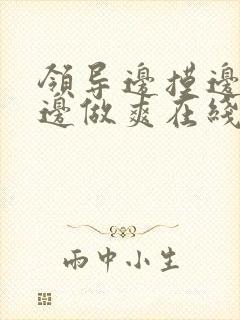 領导邊摸邊
邊做爽在綫
雨中小生